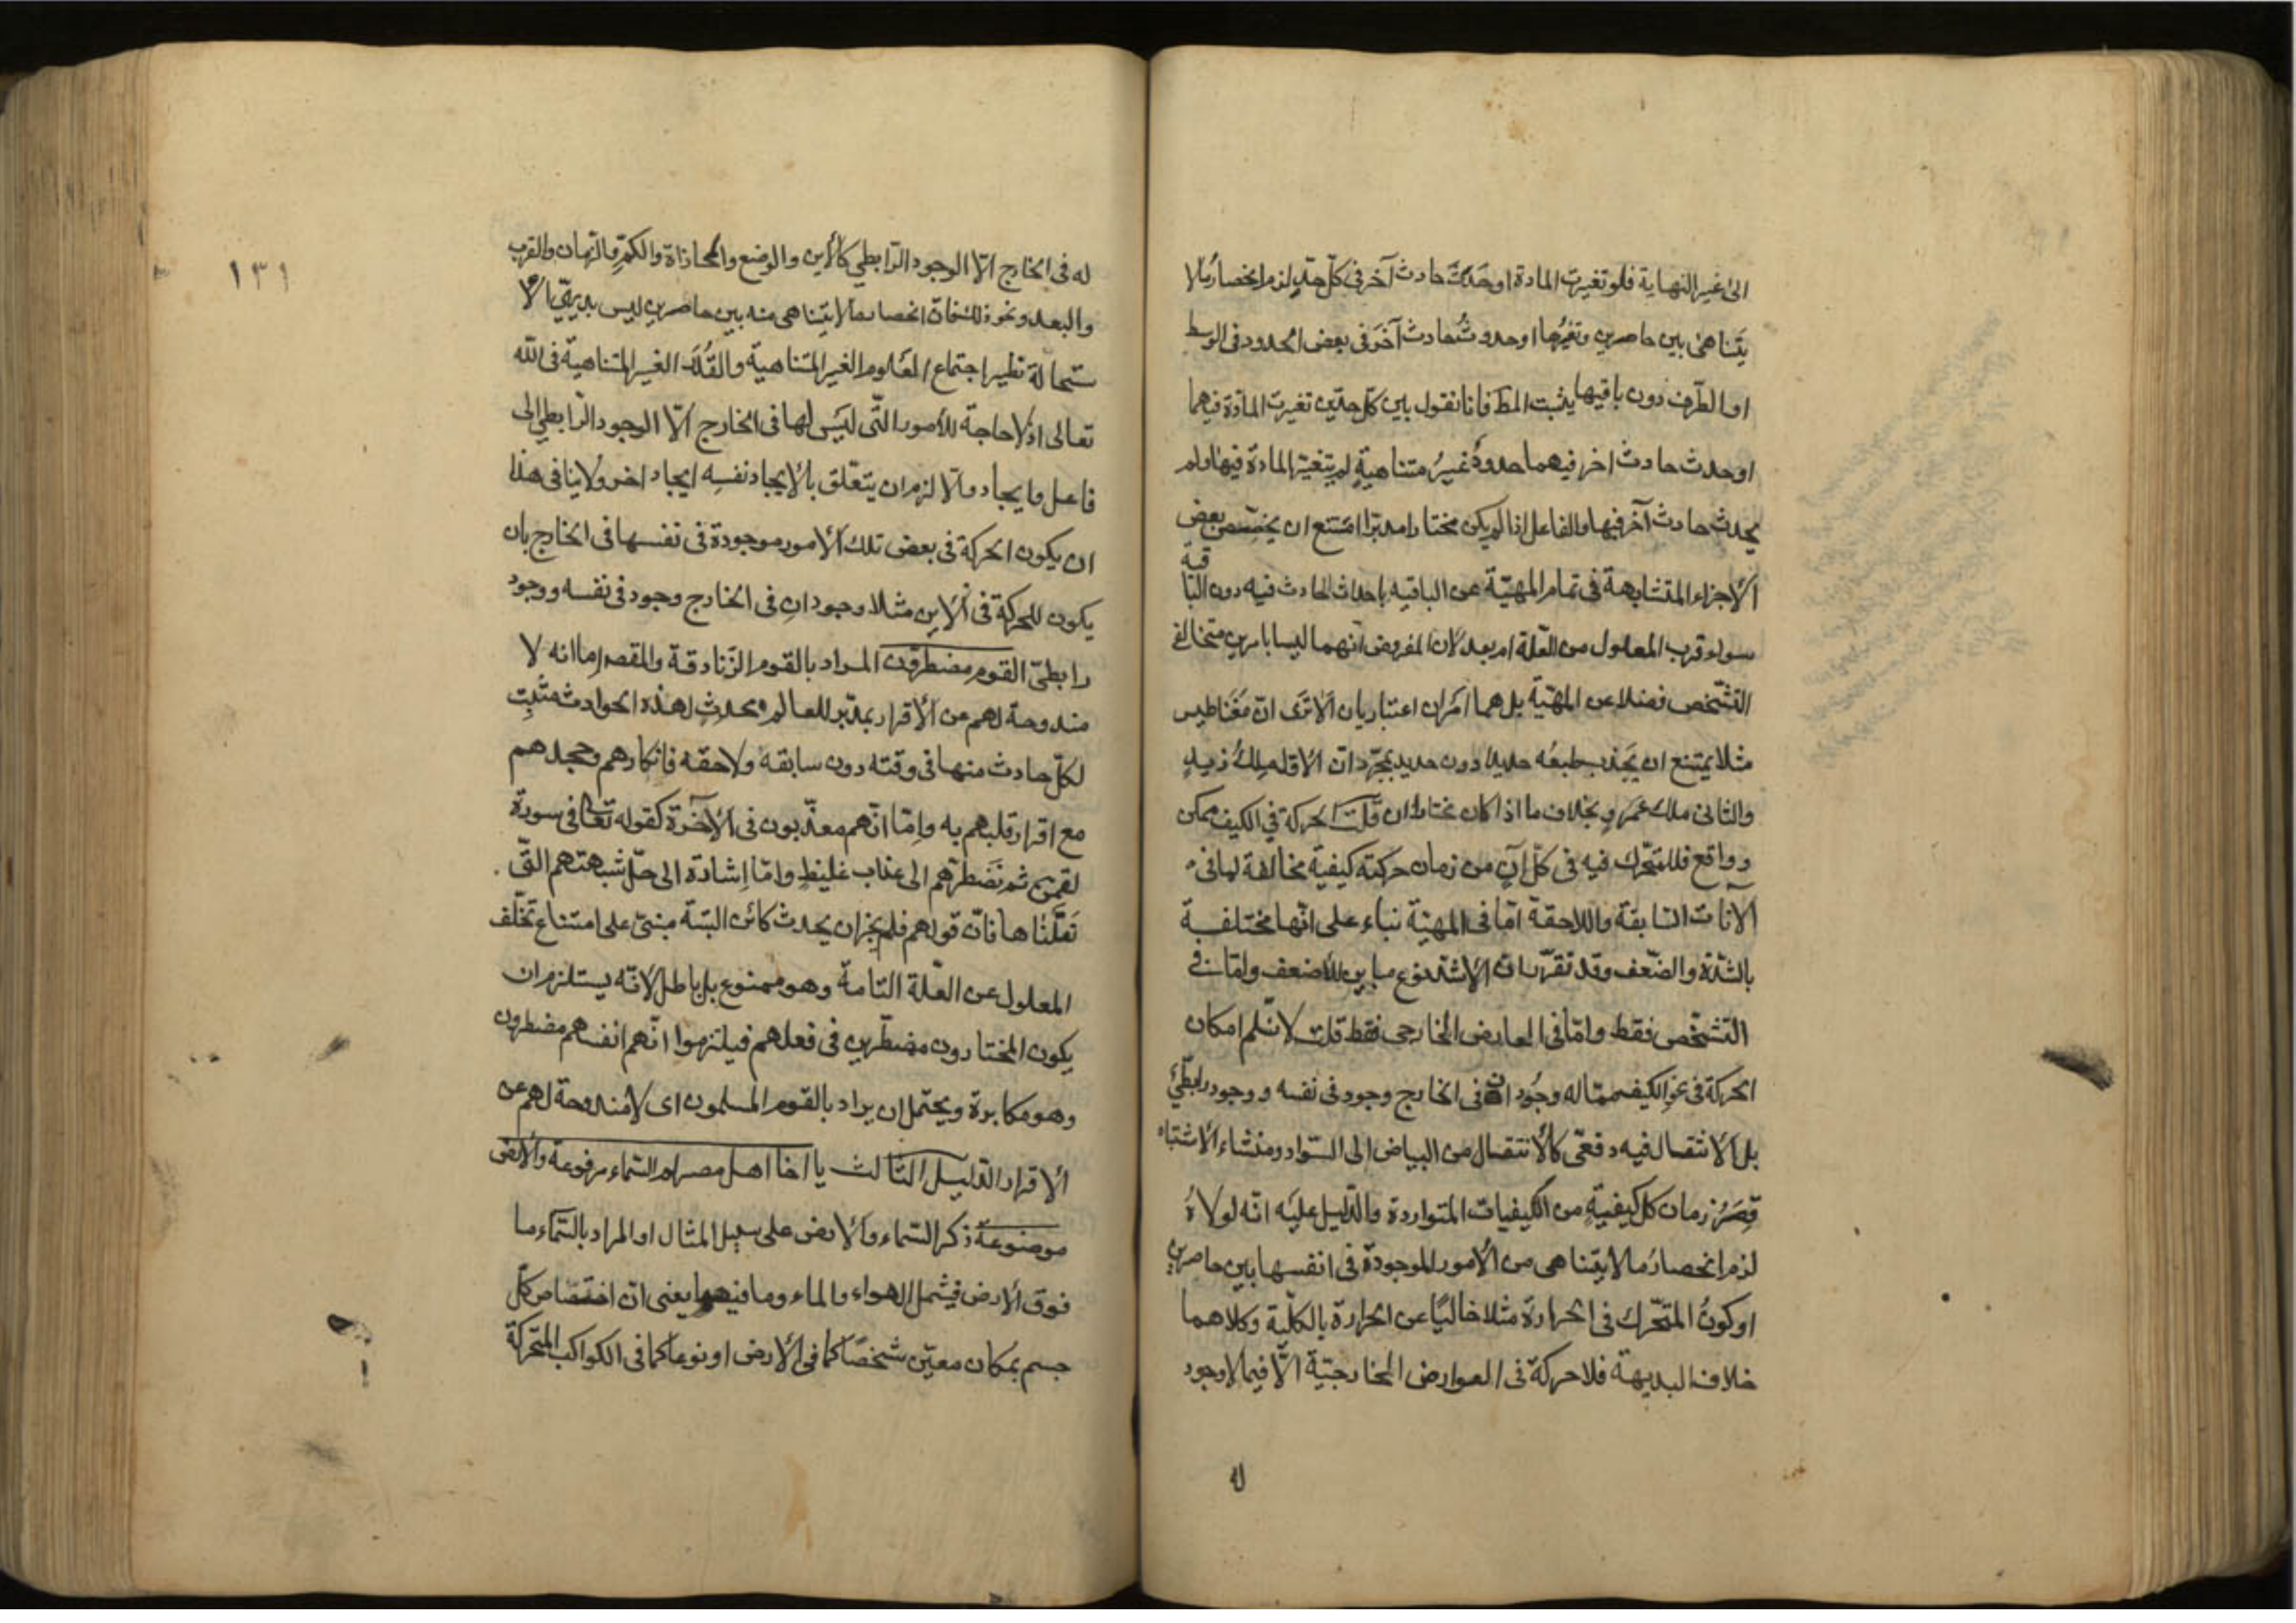 الى غير النهاية فلو تغيرت المادة او حَدَثَ حادث آخر فى كلّ حدّ لزم انحصارُ ما لا
يَتَناهىٰ بين حاصرين وتغيُّرها او حدوثُ حادث آخَر فى بعض الحدود فى الوسط
او الطّرف دون باقيها يثبت المط فانا نقول بين كلّ حدّين تغيرت المادّة فيهما
او حدث حادث اخر فيهما حدودٌ غيرُ متناهيةٍ لم يتغيّر المادة فيها ولم
يحدث حادث آخر فيها والفاعل اذا لم يكن مختارا مدبّرا امتنع ان يخصّص بعض
الأجزاء المتشابهة فى تمام المهيّة عن الباقيه باحداث الحادث فيه دون الباقية
سواء قرب المعلول من العلّة ام بعد لان المفروض انهما ليسا بامرين متخالفى
التشّخص فضلا عن المهيّة بل هما امَران اعتباريان ألا ترَى انّ مَغناطيس
مثلا يمتنع ان يَجذب بطبعُه حديدًا دون حديد بمجرّد انّ الاوّل مِلكُ زيدٍ
والثانى ملك عَمرٍو بخلاف ما اذا كان مختارا ان قلتَ الحركة فى الكيف ممكن
وواقع فللمتحّرك فيه فى كلّ آنٍ من زمان حركته كيفيّة مخالفة لما فى
الآنات السّابقة واللاحقة امّا فى المهيّة بناء على انّها مختلفة
بالشّدّة والضّعف وقد تقرّر انّ الأشدّ نوع مباين للأضعف وامّا فى
التشّخص فقط وامّا فى العارض الخارجى فقط قلت لا نسّلم امكان
الحركة فى نحو الكيف ممّا له وجُودان فى الخارج وجود فى نفسه ووجود رابطّى
بل الأنتقال فيه دفعّى كالأنتقال من البياض الى السّواد ومنشاء الأشتباه
قِصَرُ زمان كل كيفيّةٍ من الكيفيات المتواردة والدّليل عليَه انّه لولاهُ
لزم انحصارُ ما لا يتناهى من الأمور الموجودة فى انفسها بين حاصرين
او كونُ المتحّرك فى الحرارة مثلا خاليًا عن الحرارة بالكلّية وكلاهما
خلاف البديهة فلا حركة فى العوارض الخارجيّة الّا فيما لا وجود
له
١٣١
له فى الخارج الّا الوجود الرّابطي كالأين والوضع والمحاذاة والكمّ والزمان والقرب
والبعد ونحو ذلك فانّ انحصار ما لا يتناهى منه بين حاصرين ليس بديهّي الأ
ستحالة نظير اجتماع العلوم الغير المتناهية والقُدَر الغير المتناهية فى اللّه
تعالى اذ لا حاجة للأمور الّتى ليَس لها فى الخارج الّا الوجود الرّابطي الى
فاعل وايجاد والّا لزم ان يتعّلق بالأيجاد نفسِه ايجاد اخر ولا ينافى هذا
ان يكون الحركة فى بعض تلك الأمور موجودة فى نفسها فى الخارج بان
يكون للحركة فى الأين مثلا وجودانِ فى الخارج وجود فى نفسه ووجود
رابطىّ القوم مضطرّون المراد بالقوم الزّنادقة والمقصد امّا انه لا
مندوحة لهم عن الأقرار بمدّبر للعالم ومحدثِ لهذه الحوادث مثبِتِ
لكلّ حادث منها فى وقته دون سابقه ولاحقه فانكارهم وجحدهم
مع اقرار قلبهم به واِمّا انّهم معذّبون فى الآخرة كقوله تعالى فى سورة
لقمن ثم نَضطرّهم الى عذاب غليظ وامّا اِشارة الى حلّ شبهتهم الّتى
نَقَلْنٰاها فانّ قولهم فلم يجز ان يحدث كائن البتّة مبنىّ على امتناع تخلّف
المعلول عن العلّة التامة وهو ممنوع بل باطل لانّه يستلزم ان
يكون المختارون مضطّرين فى فعلهم فيلتزموا انّهم انفسهم مضطرون
وهو مكابرة ويحتمل ان يراد بالقوم المسلمون اى لا مندوحة لهم عن
الأقرار الدّليل الثالث يا اخا اهل مصر لم السّماء مرفوعة والأرض
موضوعة ذكر السّماء والأرض على سبيل المثال او المراد بالسّماء ما
فوق الأرض فيشمل الهواء والماء وما فيهما يعنى انّ اختصاص كلّ
جسم بمكان معيّن شخصًا كما فى الأرض او نوعا كما فى الكواكب المتحّركة